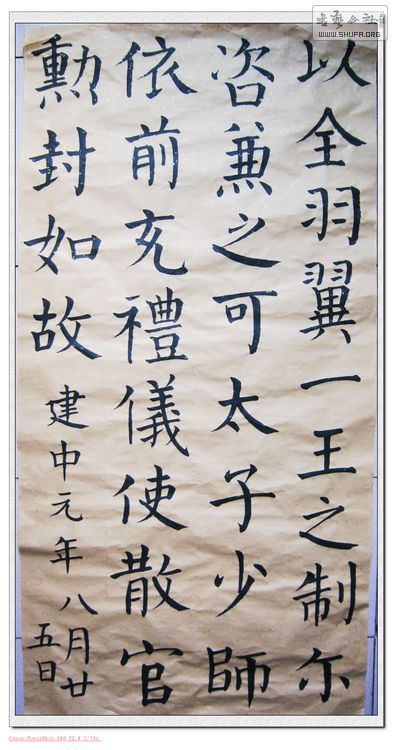 書藝公社
WWW.SHUFA.ORG
以全羽翼一王之制尔
咨兼之可太子少師
依前充禮儀使散官
勳封如故建中元年八月廿
五日
Canon PowerShot